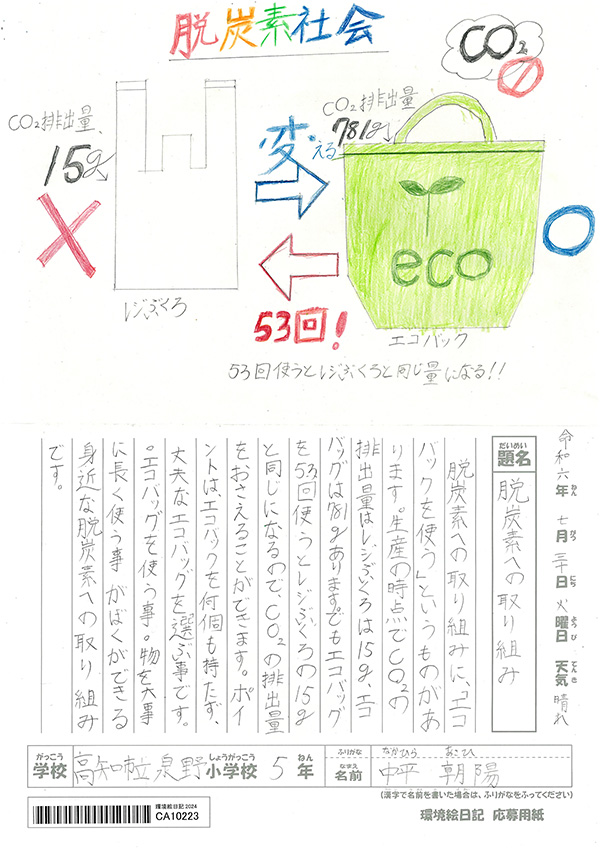 脱炭素社会
CO₂
CO₂排出量
15g
CO₂排出量
781g
変える
eco
53回!
レジぶくろ
エコバック
53回使うとレジぶくろと同じ量になる!!
令和六年 七月 三十日 火曜日 天気 晴れ
ねん がつ にち ようび てんき
だいめい
題名 脱炭素への取り組み
脱炭素への取り組みに、「エコ
バックを使う」というものがあ
ります。生産の時点でCO₂の
排出量はレジぶくろは15g、エコ
バッグは781gあります。でもエコバッグ
を53回使うとレジぶくろの15g
と同じになるので、CO₂の排出量
をおさえることができます。ポイ
ントは、エコバックを何個も持たず、
丈夫なエコバッグを選ぶ事です。
。エコバッグを使う事。物を大事
に長く使う事がぼくができる
身近な脱炭素への取り組み
です。
がっこう しょうがっこう ねん
学校 高知市立 泉野 小学校 5年
ふりがな なかひら あさひ
なまえ
名前 中平 朝陽
(漢字で名前を書いた場合は、ふりがなをふってください)
環境絵日記2024
CA10223
環境絵日記 応募用紙